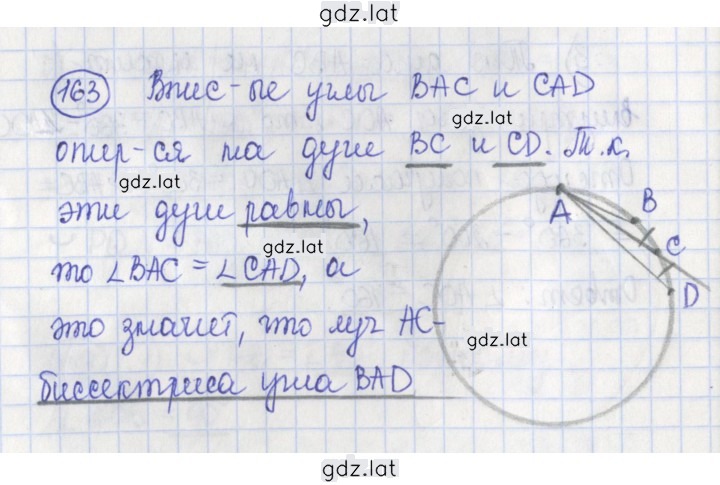 gdz.lat
163 Впис-ые углы BAC и CAD
gdz.lat
опир-ся на дуги BC и CD. Т.к.
gdz.lat
эти дуги равны,
gdz.lat
то ∠BAC = ∠CAD, а
это значит, что луч AC-
gdz.lat
биссектриса угла BAD
A
B
C
D
gdz.lat